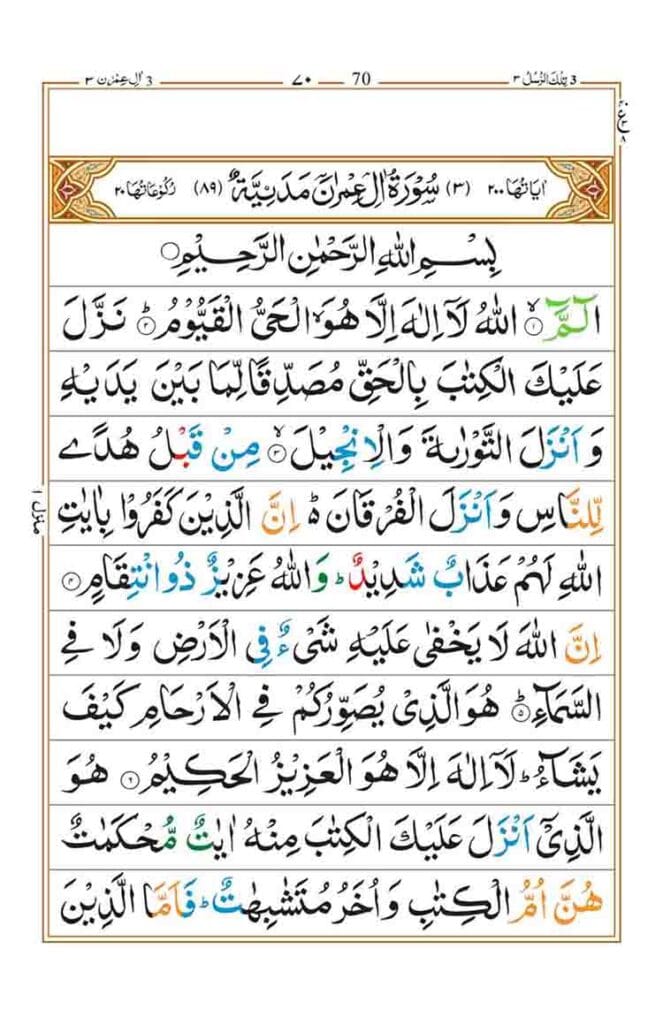 3 تِلْكَ الرُّسُلُ ٣ ٧٠ 70 3 اٰلِ عِمْرٰن ٣
اٰيَاتُهَا ٢٠٠ (٣) سُوْرَةُ اٰلِ عِمْرٰنَ مَدَنِيَّةٌ (٨٩) رُكُوْعَاتُهَا ٢٠
بِسْمِ اللّٰهِ الرَّحْمٰنِ الرَّحِيْمِ
الٓمَّٓ ١ اللّٰهُ لَاۤ اِلٰهَ اِلَّا هُوَ الْحَيُّ الْقَيُّوْمُ ؕ ٢ نَزَّلَ
عَلَيْكَ الْكِتٰبَ بِالْحَقِّ مُصَدِّقًا لِّمَا بَيْنَ يَدَيْهِ
وَ اَنْزَلَ التَّوْرٰىةَ وَالْاِنْجِيْلَ ۙ ٣ مِنْ قَبْلُ هُدًى
لِّلنَّاسِ وَاَنْزَلَ الْفُرْقَانَ ؕ۬ اِنَّ الَّذِيْنَ كَفَرُوْا بِاٰيٰتِ
اللّٰهِ لَهُمْ عَذَابٌ شَدِيْدٌ ؕ وَاللّٰهُ عَزِيْزٌ ذُوانْتِقَامٍ ٤
اِنَّ اللّٰهَ لَا يَخْفٰى عَلَيْهِ شَيْءٌ فِي الْاَرْضِ وَلَا فِي
السَّمَآءِ ؕ ٥ هُوَ الَّذِيْ يُصَوِّرُكُمْ فِي الْاَرْحَامِ كَيْفَ
يَشَآءُ ؕ لَاۤ اِلٰهَ اِلَّا هُوَ الْعَزِيْزُ الْحَكِيْمُ ٦ هُوَ
الَّذِيْۤ اَنْزَلَ عَلَيْكَ الْكِتٰبَ مِنْهُ اٰيٰتٌ مُّحْكَمٰتٌ
هُنَّ اُمُّ الْكِتٰبِ وَاُخَرُ مُتَشٰبِهٰتٌ ؕ فَاَمَّا الَّذِيْنَ
منزل ١